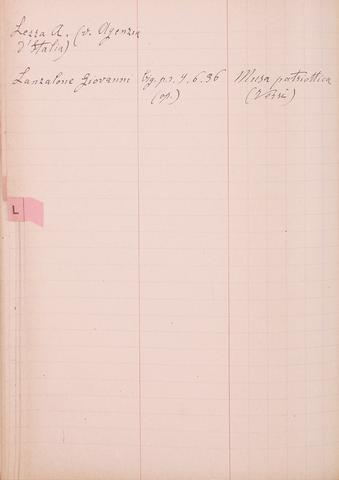 Lezza A. (v. Agenzia
d'Italia)
Lanzalone Giovanni
(op.)
Musa patriottica
(Versi)
L